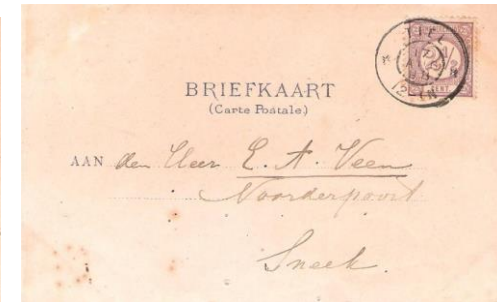 BRIEFKAART
(Carte Postale.)
AAN den Heer E. A. Veen
Noorderpoort
Sneek.
TIEL
2½
CENT